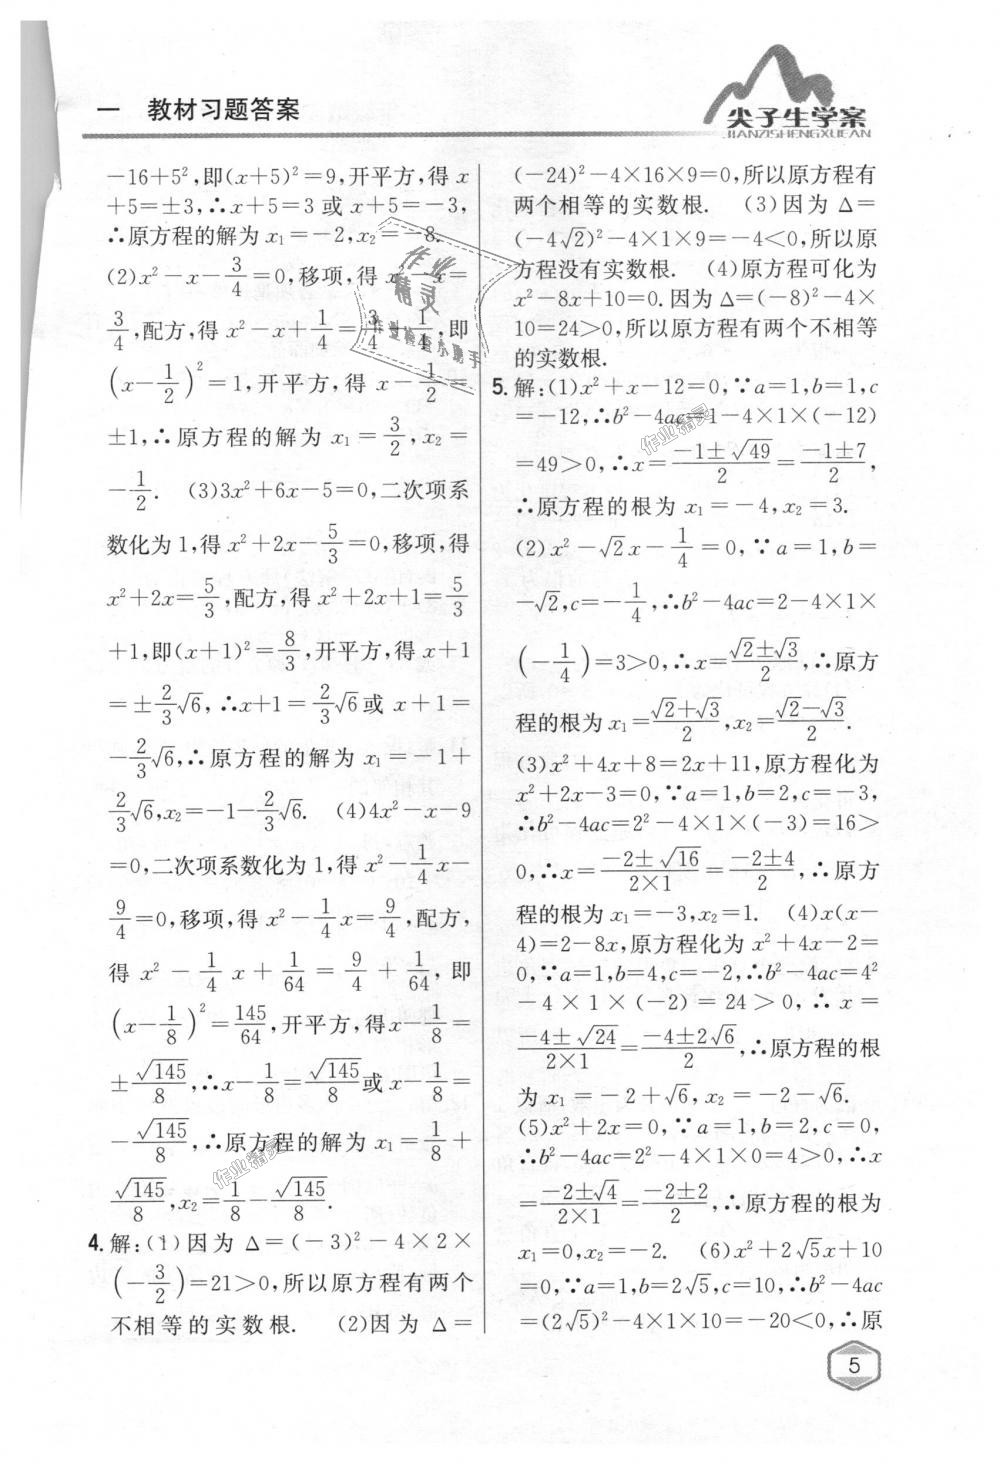 一 教材习题答案
尖子生学案
JIANZISHENGXUEAN
-16+5²,即(x+5)²=9,开平方,得x
+5=±3,∴x+5=3或x+5=-3,
∴原方程的解为x₁=-2,x₂=-8.
(2)x²-x-3/4=0,移项,得x²-x=
3/4,配方,得x²-x+1/4=3/4+1/4,即
(x-1/2)²=1,开平方,得x-1/2=
±1,∴原方程的解为x₁=3/2,x₂=
-1/2. (3)3x²+6x-5=0,二次项系
数化为1,得x²+2x-5/3=0,移项,得
x²+2x=5/3,配方,得x²+2x+1=5/3
+1,即(x+1)²=8/3,开平方,得x+1
=±2/3√6,∴x+1=2/3√6或x+1=
-2/3√6,∴原方程的解为x₁=-1+
2/3√6,x₂=-1-2/3√6. (4)4x²-x-9
=0,二次项系数化为1,得x²-1/4x-
9/4=0,移项,得x²-1/4x=9/4,配方,
得x²-1/4x+1/64=9/4+1/64,即
(x-1/8)²=145/64,开平方,得x-1/8=
±√145/8,∴x-1/8=√145/8或x-1/8=
-√145/8,∴原方程的解为x₁=1/8+
√145/8,x₂=1/8-√145/8.
4.解:(1)因为Δ=(-3)²-4×2×
(-3/2)=21>0,所以原方程有两个
不相等的实数根. (2)因为Δ=
(-24)²-4×16×9=0,所以原方程有
两个相等的实数根. (3)因为Δ=
(-4√2)²-4×1×9=-4<0,所以原
方程没有实数根. (4)原方程可化为
x²-8x+10=0.因为Δ=(-8)²-4×
10=24>0,所以原方程有两个不相等
的实数根.
5.解:(1)x²+x-12=0,∵a=1,b=1,c
=-12,∴b²-4ac=1-4×1×(-12)
=49>0,∴x=(-1±√49)/2=(-1±7)/2,
∴原方程的根为x₁=-4,x₂=3.
(2)x²-√2x-1/4=0,∵a=1,b=
-√2,c=-1/4,∴b²-4ac=2-4×1×
(-1/4)=3>0,∴x=(√2±√3)/2,∴原方
程的根为x₁=(√2+√3)/2,x₂=(√2-√3)/2.
(3)x²+4x+8=2x+11,原方程化为
x²+2x-3=0,∵a=1,b=2,c=-3,
∴b²-4ac=2²-4×1×(-3)=16>
0,∴x=(-2±√16)/(2×1)=(-2±4)/2,∴原方
程的根为x₁=-3,x₂=1. (4)x(x-
4)=2-8x,原方程化为x²+4x-2=
0,∵a=1,b=4,c=-2,∴b²-4ac=4²
-4×1×(-2)=24>0,∴x=
(-4±√24)/(2×1)=(-4±2√6)/2,∴原方程的根
为x₁=-2+√6,x₂=-2-√6.
(5)x²+2x=0,∵a=1,b=2,c=0,
∴b²-4ac=2²-4×1×0=4>0,∴x
=(-2±√4)/(2×1)=(-2±2)/2,∴原方程的根为
x₁=0,x₂=-2. (6)x²+2√5x+10
=0,∵a=1,b=2√5,c=10,∴b²-4ac
=(2√5)²-4×1×10=-20<0,∴原
作业
精灵
作业检查小助手
作业精灵
作业精灵
5